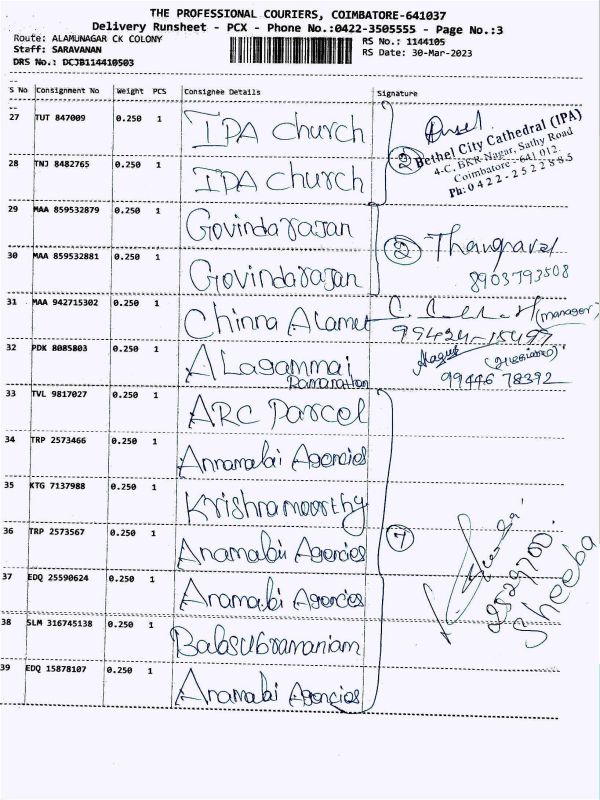 THE PROFESSIONAL COURIERS, COIMBATORE-641037
Delivery Runsheet - PCX - Phone No.:0422-3505555 - Page No.:3
Route: ALAMUNAGAR CK COLONY
RS No.: 1144105
Staff: SARAVANAN
RS Date: 30-Mar-2023
DRS No.: DCJB114410503
S No Consignment No Weight PCS Consignee Details Signature
27 TUT 847009 0.250 1 IPA church
Bethel City Cathedral (IPA)
4-C, BKR Nagar, Sathy Road
Coimbatore - 641 012.
Ph: 0422-2522885
28 TNJ 8482765 0.250 1 IPA church
2
29 MAA 859532879 0.250 1 Govindarajan
2 Thangavel
8903793508
30 MAA 859532881 0.250 1 Govindarajan
31 MAA 942715302 0.250 1 Chinna Alamu
(manager)
99434-15497
32 PDK 8085803 0.250 1 ALagammai
Ramanathan
99446 78392
33 TVL 9817027 0.250 1 ARC Parcel
34 TRP 2573466 0.250 1 Annamalai Agencies
35 KTG 7137988 0.250 1 Krishnamoorthy
36 TRP 2573567 0.250 1 Anamalai Agencies
7
37 EDQ 25590624 0.250 1 Anamalai Agencies
38 SLM 316745138 0.250 1 Balasubramaniam
39 EDQ 15878107 0.250 1 Anamalai Agencies
Sheeba